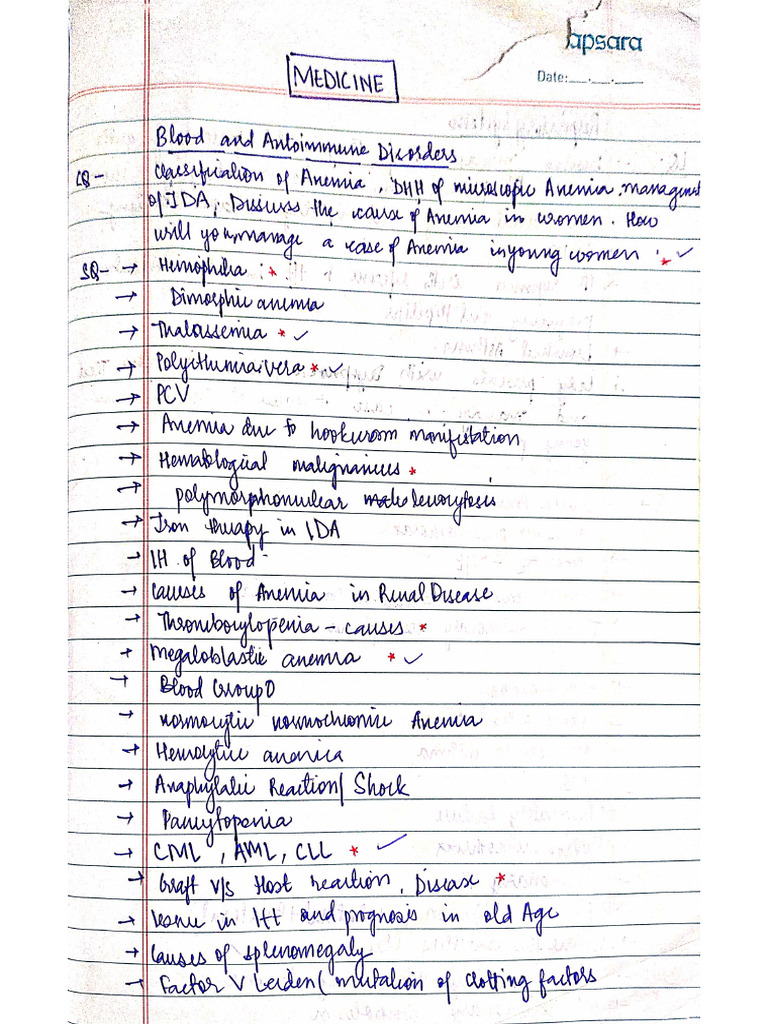 apsara
Date:__.__.____
MEDICINE
Blood and Autoimmune Disorders
LQ - Classification of Anemia, DHH of microscopic Anemia. managemet
of IDA, Discuss the cause of Anemia in women. How
will you manage a case of Anemia in young women * ✓
SQ- → Hemophilia : *
→ Dimorphic anemia
→ Thalassemia * ✓
→ Polycithimia vera * ✓
→ PCV
→ Anemia due to hookworm manifistation
→ Hematological malignancies *
→ polymorphonuclear leucocytosis
→ Iron therapy in IDA
→ IH of Blood -
→ Causes of Anemia in Renal Disease
→ Thrombocytopenia - causes *
→ Megaloblastic anemia * ✓
→ Blood Group O
→ normocytic normochromic Anemia
→ Hemolytic anemica
→ Anaphylatic Reaction/ Shock
→ Pancytopenia
→ CML , AML, CLL * ✓
→ Graft v/s Host reaction, Disease *
→ in and prognosis in old Age
→ Causes of splenomegaly
→ Factor V Leiden ( mutation of clotting factors